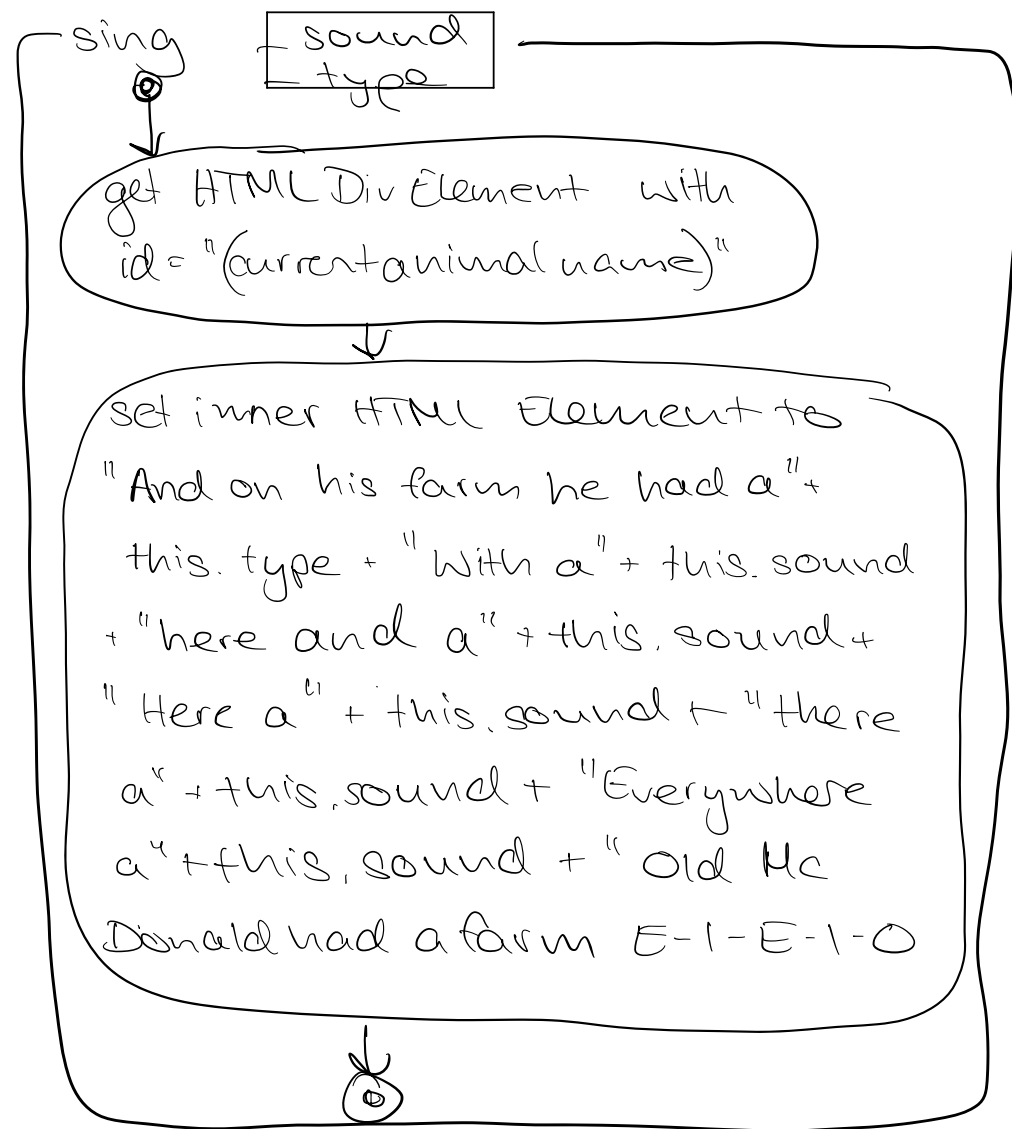 sing
- sound
- type
get HTML Div Element with
id = "(current animal name)"
set inner HTML Element to
"And on his farm he had a" +
this. type + "With a" + this. sound
+ "here and a" + this. sound +
"Here a" + this. sound + "there
a" + this. sound + "Everywhere
a" + this. sound + "Old Mc
Donald had a farm E-I-E-I-O